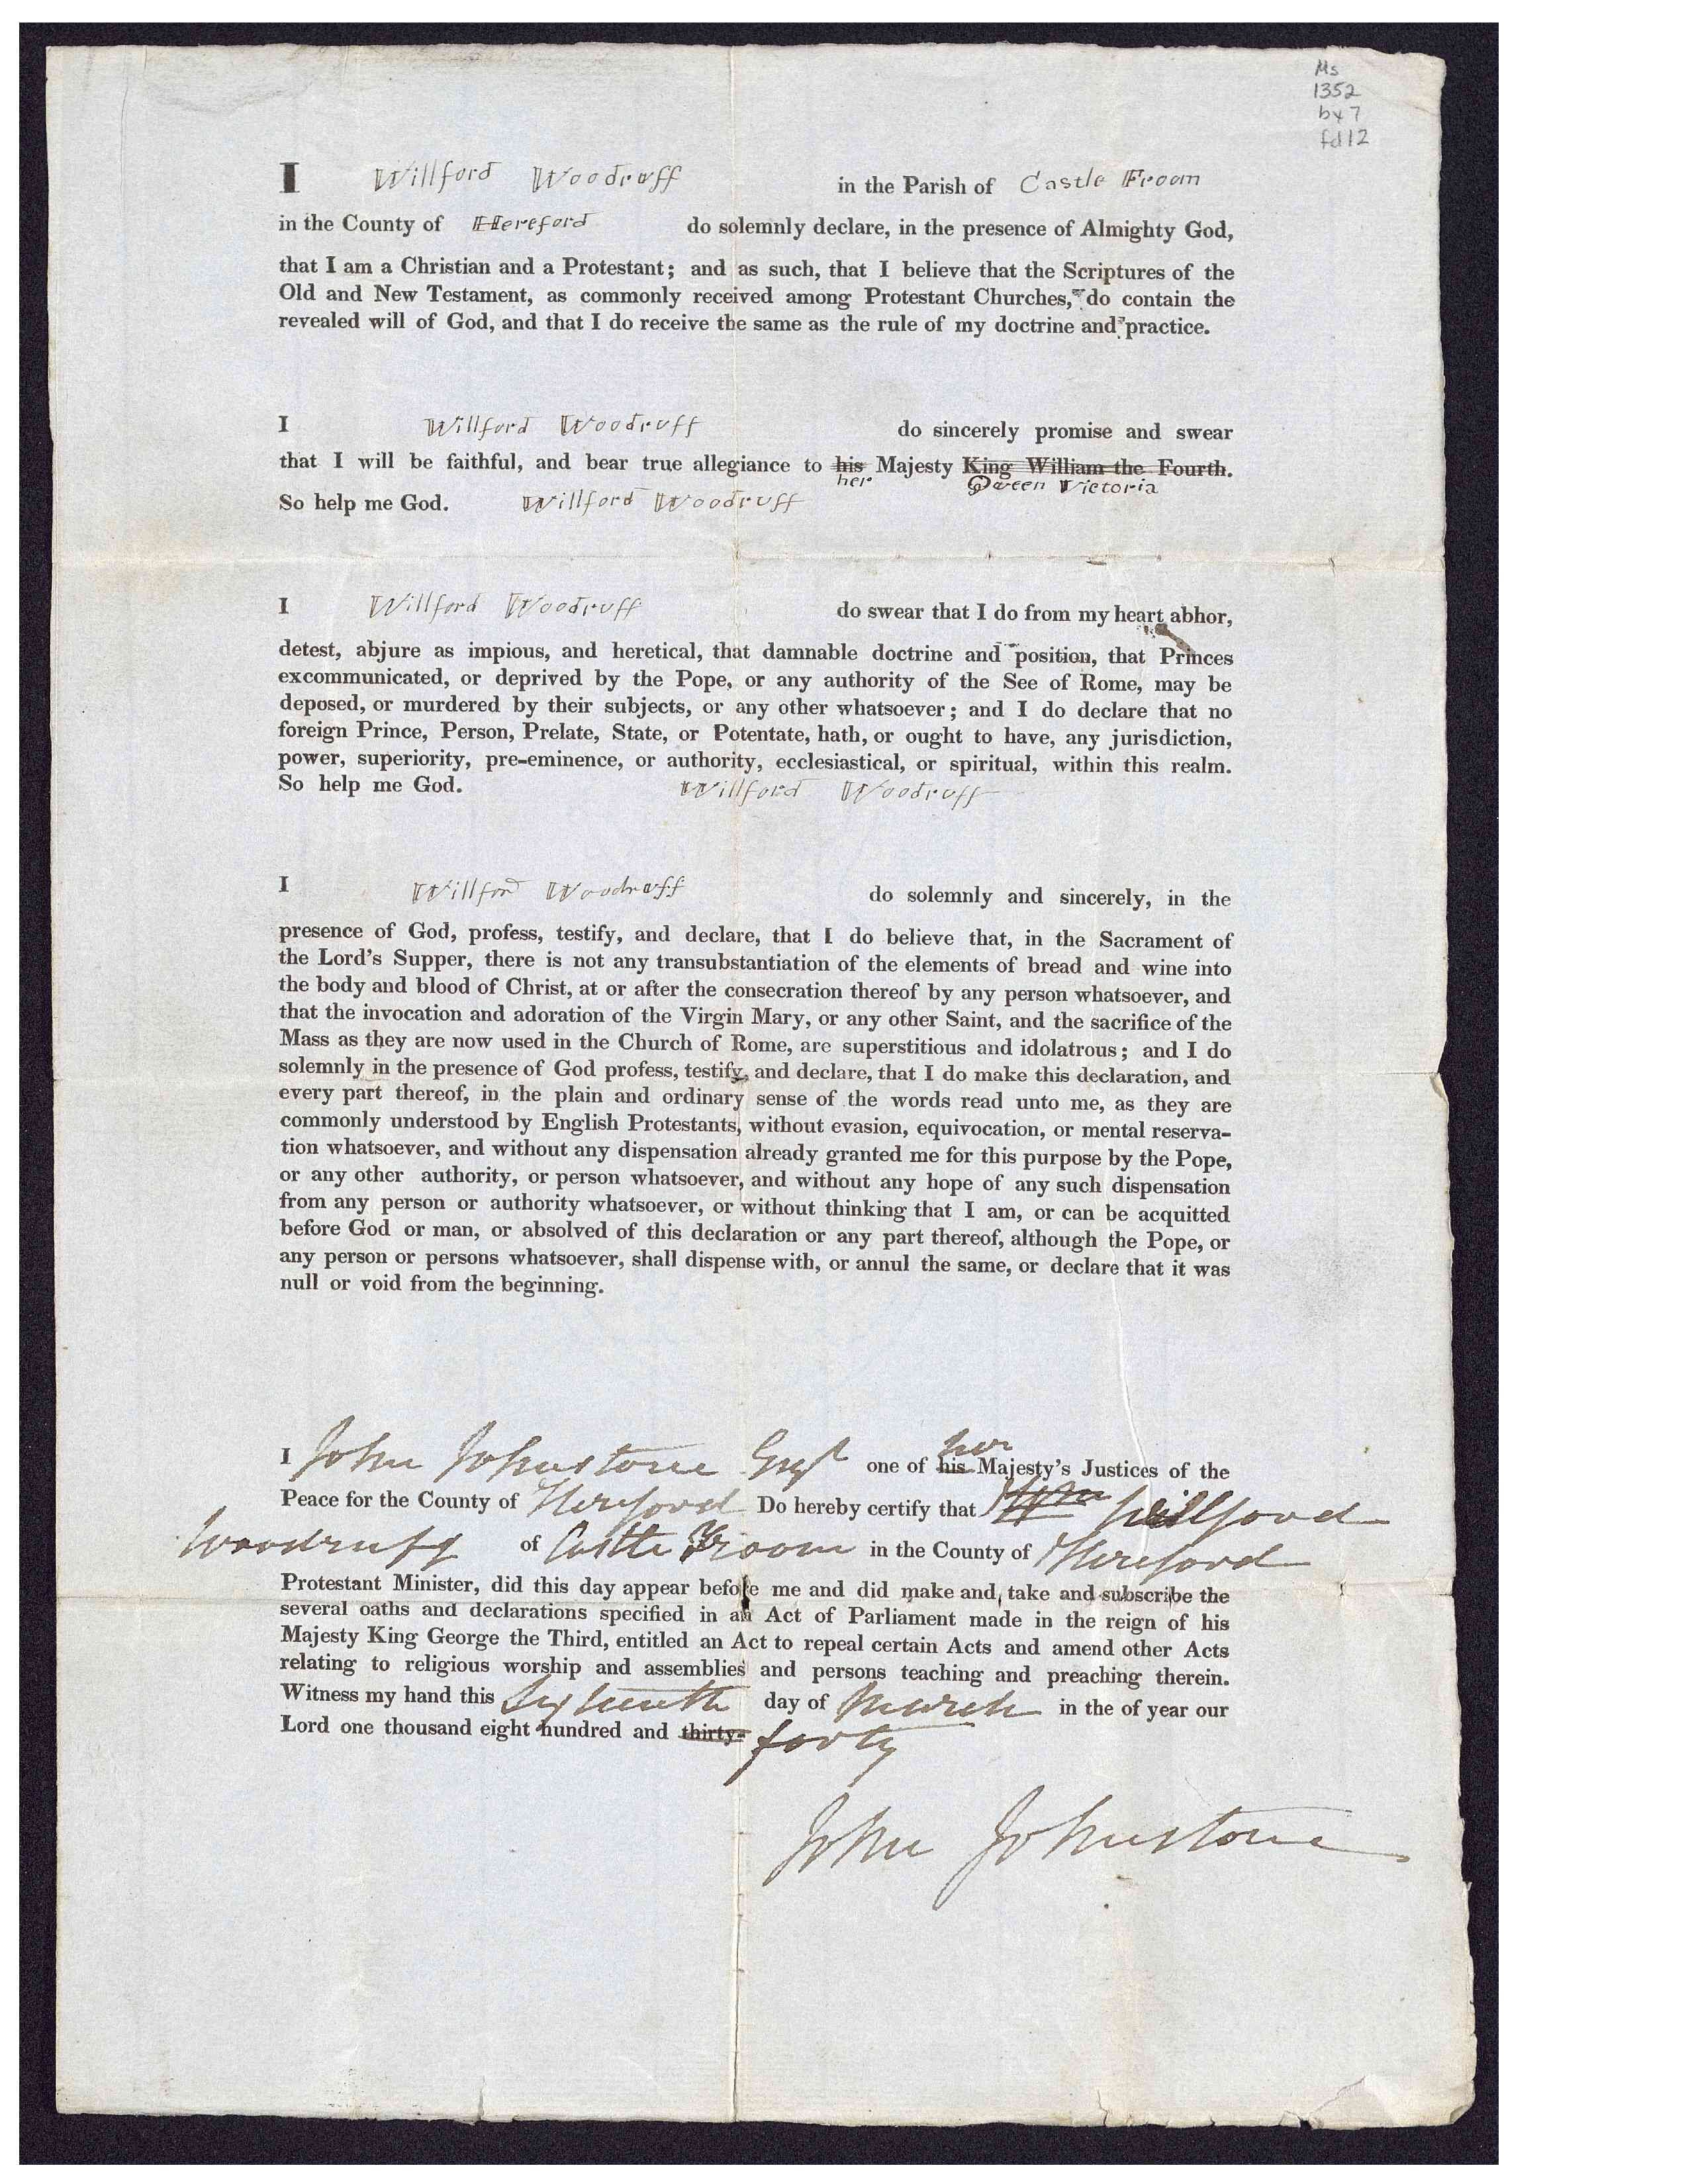 Ms
1352
bx 7
fd 12
I Willford Woodruff in the Parish of Castle Froom
in the County of Hereford do solemnly declare, in the presence of Almighty God,
that I am a Christian and a Protestant; and as such, that I believe that the Scriptures of the
Old and New Testament, as commonly received among Protestant Churches, do contain the
revealed will of God, and that I do receive the same as the rule of my doctrine and practice.
I Willford Woodruff do sincerely promise and swear
that I will be faithful, and bear true allegiance to his Majesty King William the Fourth.
her Queen Victoria
So help me God. Willford Woodruff
I Willford Woodruff do swear that I do from my heart abhor,
detest, abjure as impious, and heretical, that damnable doctrine and position, that Princes
excommunicated, or deprived by the Pope, or any authority of the See of Rome, may be
deposed, or murdered by their subjects, or any other whatsoever; and I do declare that no
foreign Prince, Person, Prelate, State, or Potentate, hath, or ought to have, any jurisdiction,
power, superiority, pre-eminence, or authority, ecclesiastical, or spiritual, within this realm.
So help me God. Willford Woodruff
I Willford Woodruff do solemnly and sincerely, in the
presence of God, profess, testify, and declare, that I do believe that, in the Sacrament of
the Lord's Supper, there is not any transubstantiation of the elements of bread and wine into
the body and blood of Christ, at or after the consecration thereof by any person whatsoever, and
that the invocation and adoration of the Virgin Mary, or any other Saint, and the sacrifice of the
Mass as they are now used in the Church of Rome, are superstitious and idolatrous; and I do
solemnly in the presence of God profess, testify, and declare, that I do make this declaration, and
every part thereof, in the plain and ordinary sense of the words read unto me, as they are
commonly understood by English Protestants, without evasion, equivocation, or mental reserva-
tion whatsoever, and without any dispensation already granted me for this purpose by the Pope,
or any other authority, or person whatsoever, and without any hope of any such dispensation
from any person or authority whatsoever, or without thinking that I am, or can be acquitted
before God or man, or absolved of this declaration or any part thereof, although the Pope, or
any person or persons whatsoever, shall dispense with, or annul the same, or declare that it was
null or void from the beginning.
her
I John Johnstone Esqr one of his Majesty's Justices of the
Peace for the County of Hereford Do hereby certify that Wm Willford
Woodruff of Castle Froom in the County of Hereford
Protestant Minister, did this day appear before me and did make and take and subscribe the
several oaths and declarations specified in an Act of Parliament made in the reign of his
Majesty King George the Third, entitled an Act to repeal certain Acts and amend other Acts
relating to religious worship and assemblies and persons teaching and preaching therein.
Witness my hand this Sixteenth day of March in the of year our
Lord one thousand eight hundred and thirty- forty
John Johnstone